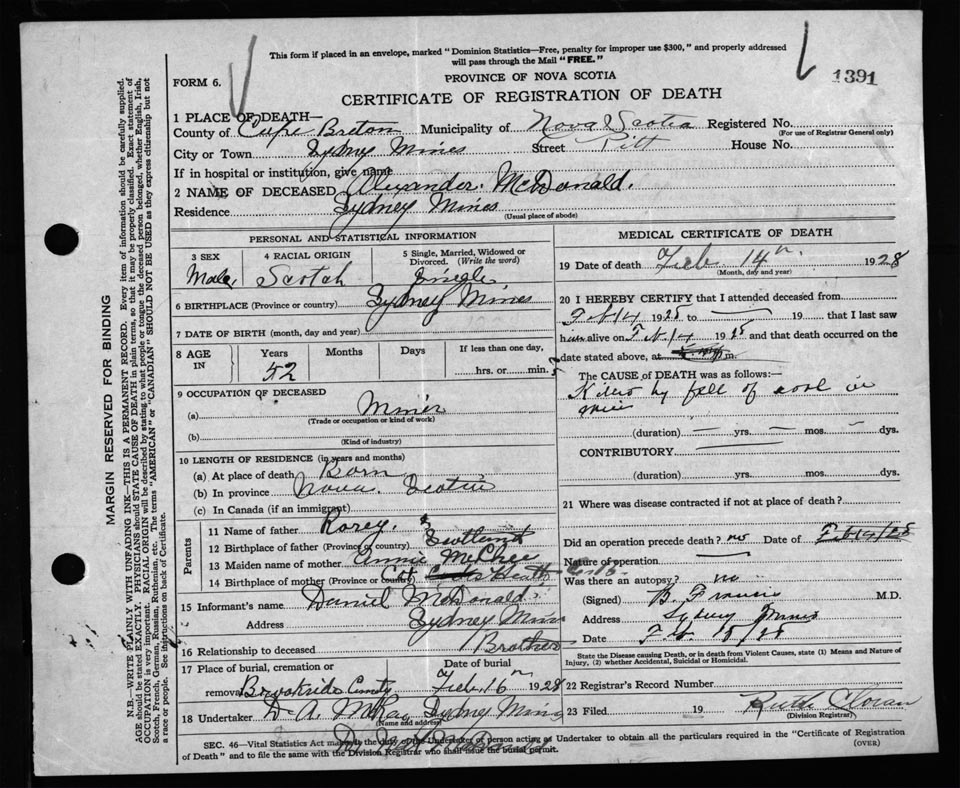 This form if placed in an envelope, marked "Dominion Statistics—Free, penalty for improper use $300," and properly addressed
will pass through the Mail "FREE."
FORM 6.
PROVINCE OF NOVA SCOTIA
1391
CERTIFICATE OF REGISTRATION OF DEATH
1 PLACE OF DEATH—
County of Cape Breton Municipality of Nova Scotia Registered No.
(For use of Registrar General only)
City or Town Sydney Mines Street Pitt House No.
If in hospital or institution, give name
2 NAME OF DECEASED Alexander McDonald.
Residence Sydney Mines
(Usual place of abode)
PERSONAL AND STATISTICAL INFORMATION
3 SEX 4 RACIAL ORIGIN 5 Single, Married, Widowed or
Divorced. (Write the word)
Male, Scotch Single
6 BIRTHPLACE (Province or country) Sydney Mines
7 DATE OF BIRTH (month, day and year)
8 AGE IN Years Months Days If less than one day,
52 hrs. or min.
9 OCCUPATION OF DECEASED
(a) Miner
(Trade or occupation or kind of work)
(b)
(Kind of industry)
10 LENGTH OF RESIDENCE (in years and months)
(a) At place of death Born
(b) In province Nova Scotia
(c) In Canada (if an immigrant)
Parents
11 Name of father Rorey.
12 Birthplace of father (Province or country) Scotland
13 Maiden name of mother Annie McPhee
14 Birthplace of mother (Province or country)
15 Informant's name Daniel McDonald.
Address Sydney Mines
16 Relationship to deceased Brother
17 Place of burial, cremation or Date of burial
removal Brookside Feb. 16 1928
18 Undertaker D. A. Sydney Mines
(Name and address)
MEDICAL CERTIFICATE OF DEATH
19 Date of death Feb. 14th 1928
(Month, day and year)
20 I HEREBY CERTIFY that I attended deceased from
Feb 14 1928 to — 19 — that I last saw
him alive on Feb. 14 1928 and that death occurred on the
date stated above, at m.
The CAUSE of DEATH was as follows:—
Killed by fall of coal in
mine
(duration) — yrs. — mos. — dys.
CONTRIBUTORY —
(duration) — yrs. — mos. — dys.
21 Where was disease contracted if not at place of death?
Did an operation precede death? no Date of Feb 14/28
Nature of operation —
Was there an autopsy? no
(Signed) B. Francis M.D.
Address Sydney Mines
Date Feb 15/28
State the Disease causing Death, or in death from Violent Causes, state (1) Means and Nature of
Injury, (2) whether Accidental, Suicidal or Homicidal.
22 Registrar's Record Number
23 Filed 19 Ruth
(Division Registrar)
SEC. 46—Vital Statistics Act makes the duty of the Undertaker or person acting as Undertaker to obtain all the particulars required in the "Certificate of Registration
of Death" and to file the same with the Division Registrar who shall issue the burial permit.
(OVER)
MARGIN RESERVED FOR BINDING
N.B.—WRITE PLAINLY WITH UNFADING INK—THIS IS A PERMANENT RECORD. Every item of information should be carefully supplied.
AGE should be stated EXACTLY. PHYSICIANS should STATE CAUSE OF DEATH in plain terms, so that it may be properly classified. Exact statement of
OCCUPATION is very important. RACIAL ORIGIN will be described by stating to what people or tongue the deceased person belonged, whether English, Irish,
Scotch, French, German, Russian, Ruthenian, etc. The terms "AMERICAN" or "CANADIAN" SHOULD NOT BE USED as they express citizenship but not
a race or people. See instructions on back of Certificate.